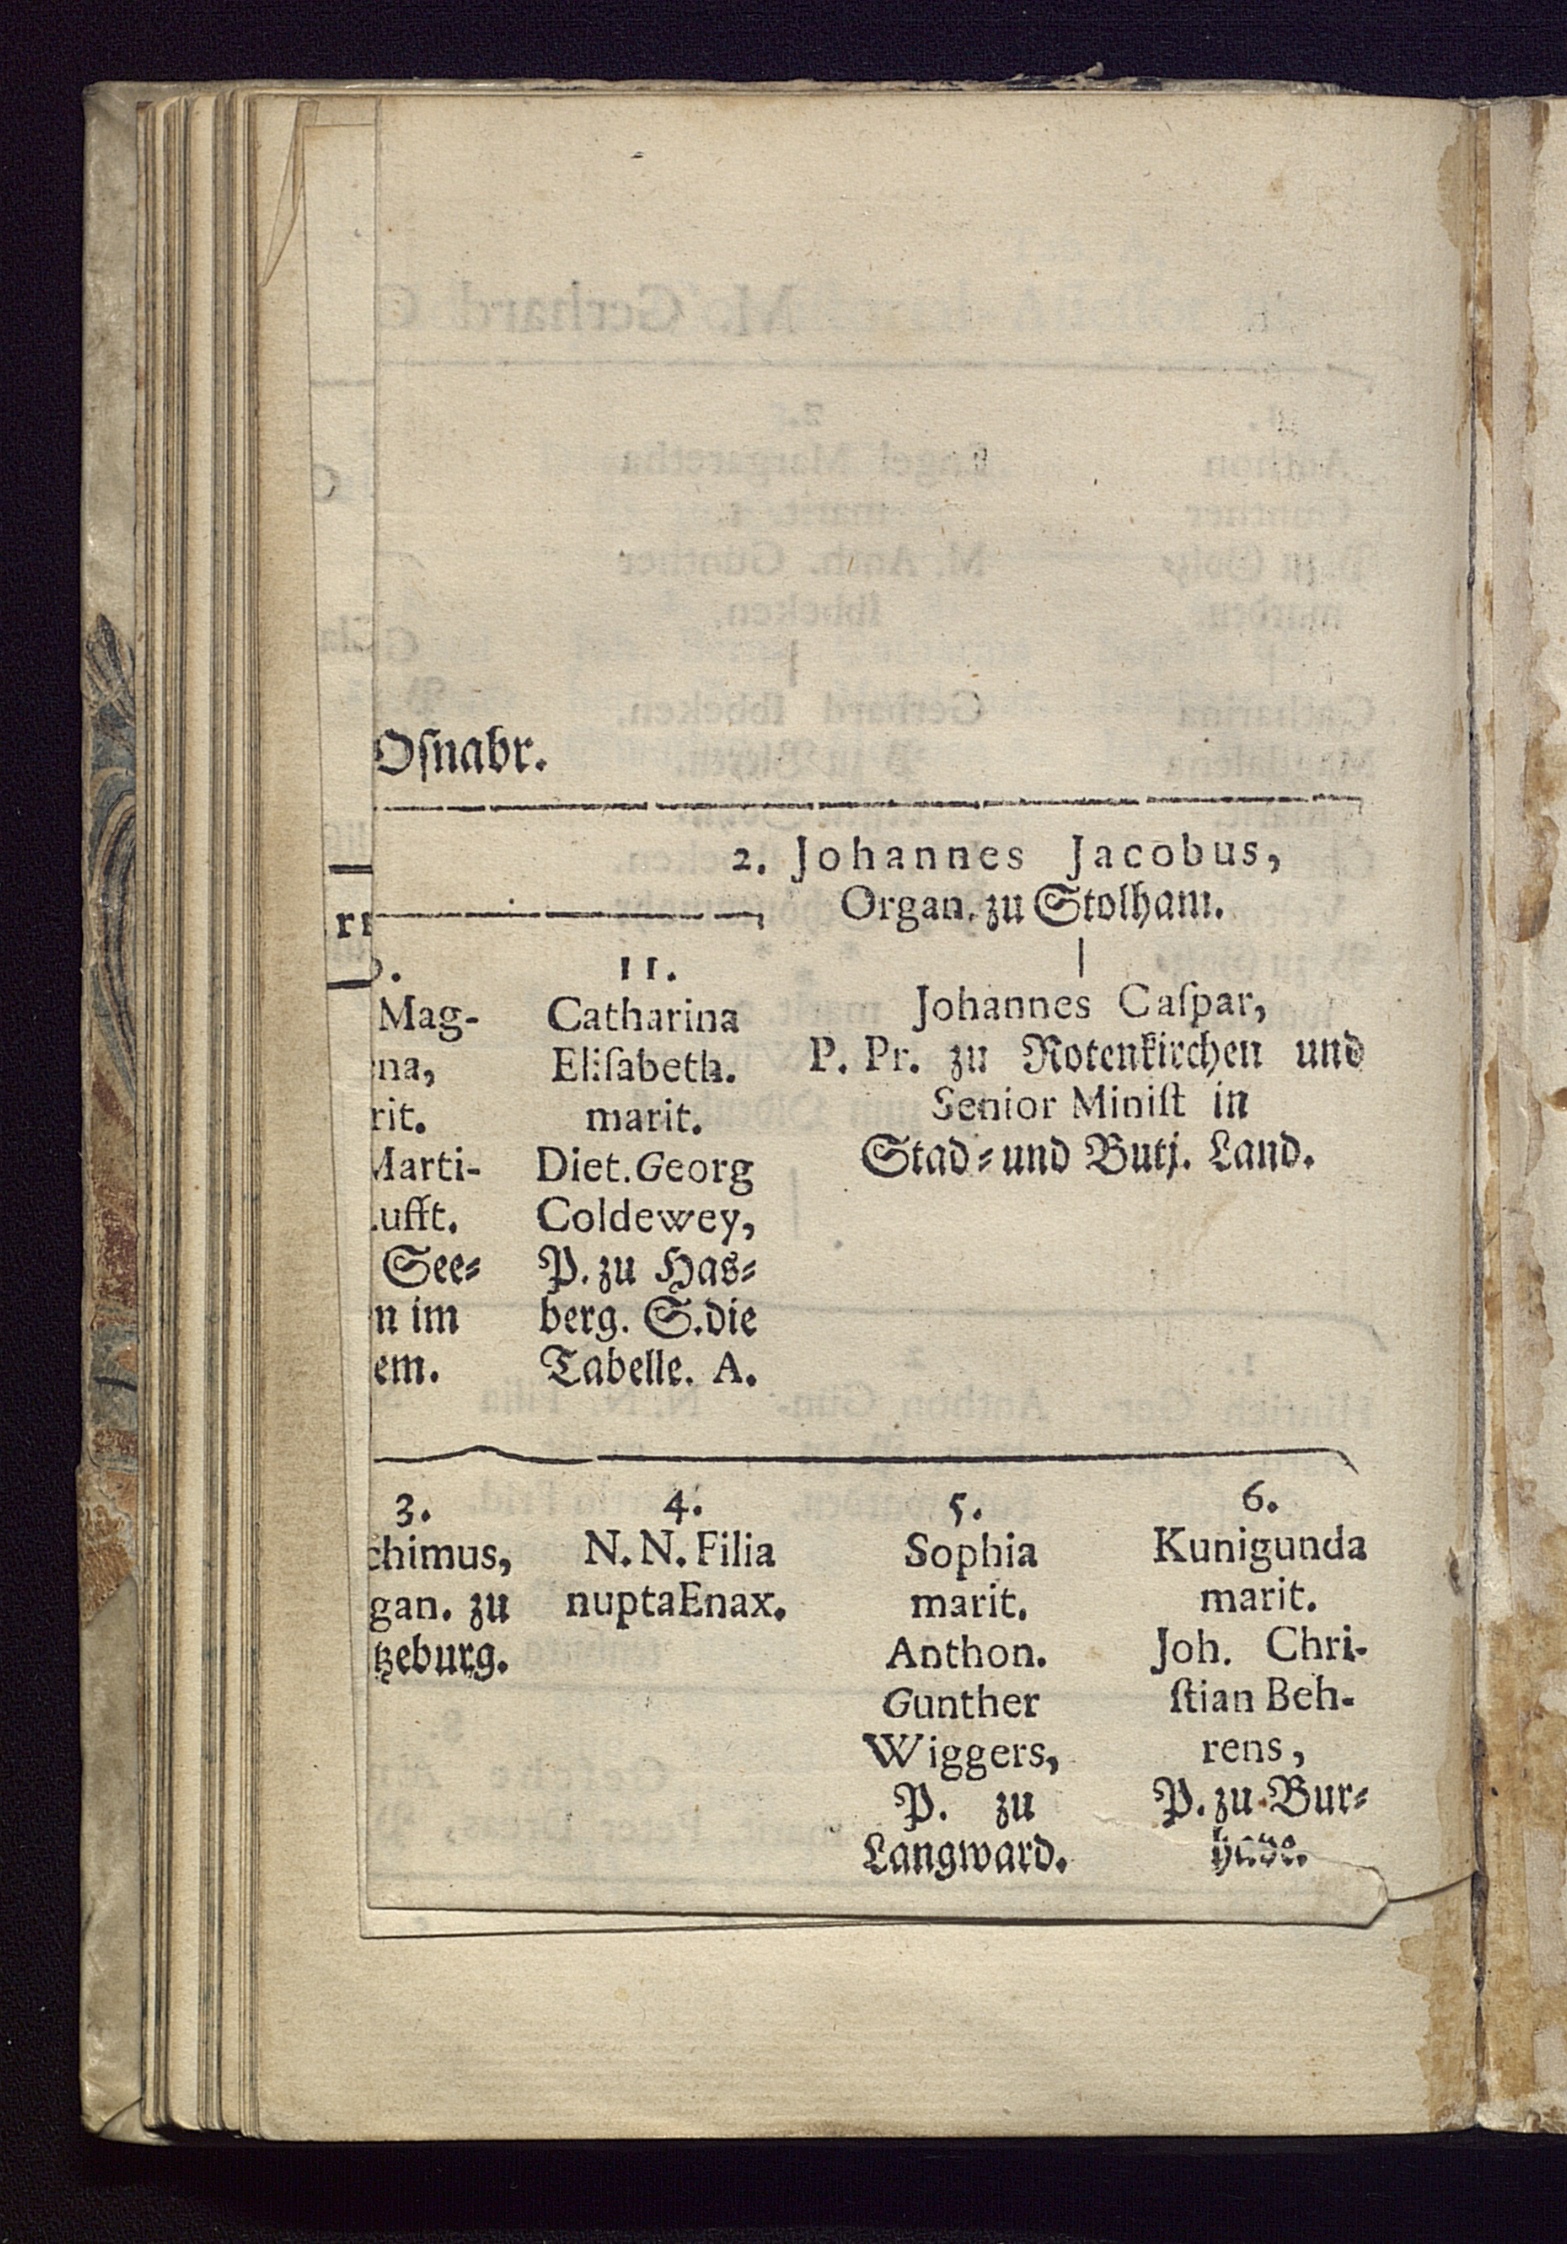 Oſnabr.
2. Johannes Jacobus,
Organ. zu Stolham.
Johannes Caſpar,
P. Pr. zu Rotenkirchen und
Senior Miniſt in
Stad⸗und Butj. Land.
Mag-
na,
rit.
Marti-
ufft.
See⸗
n im
em.
11.
Catharina
Eliſabeth.
marit.
Diet. Georg
Coldewey,
P. zu Has⸗
berg. S. die
Tabelle. A.
3.
chimus,
gan. zu
tzeburg.
4.
N. N. Filia
nupta Enax.
5.
Sophia
marit.
Anthon.
Gunther
Wiggers,
P. zu
Langward.
6.
Kunigunda
marit.
Joh. Chri-
ſtian Beh-
rens,
P. zu Bur⸗
hade.